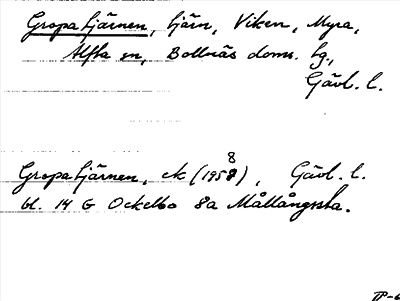 Gropatjärnen, tjärn, Viken, Myra,
Alfta sn, Bollnäs doms. hg.,
Gävl. l.
Gropatjärnen, ek (1958), Gävl. l.
bl. 14 G Ockelbo 8a Mållångssta.